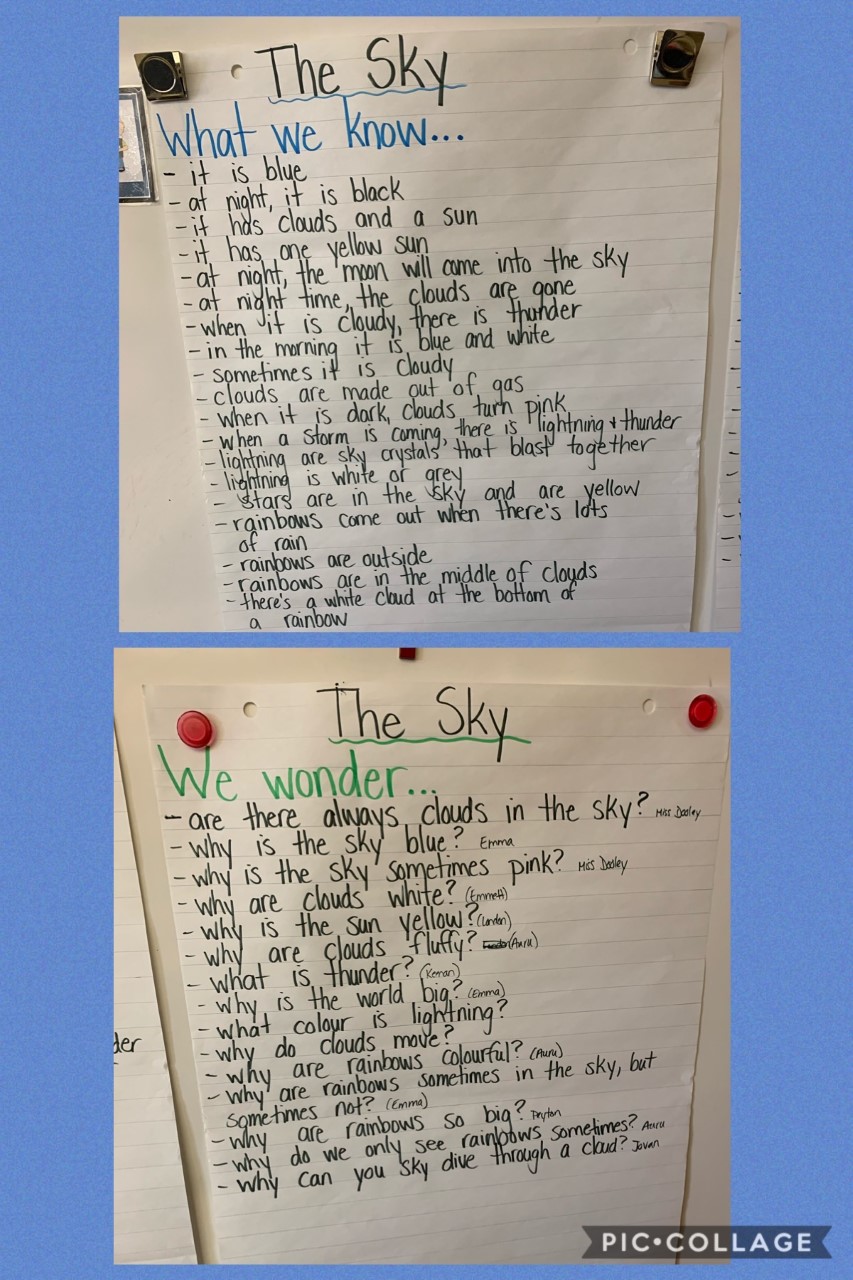 The Sky
What we know...
- it is blue
- at night, it is black
- it has clouds and a sun
- it has one yellow sun
- at night, the moon will come into the sky
- at night time, the clouds are gone
- when it is cloudy, there is thunder
- in the morning it is blue and white
- sometimes it is cloudy
- clouds are made out of gas
- when it is dark, clouds turn pink
- when a storm is coming, there is lightning + thunder
- lightning are sky crystals that blast together
- lightning is white or grey
- stars are in the sky and are yellow
- rainbows come out when there's lots
of rain
- rainbows are outside
- rainbows are in the middle of clouds
- there's a white cloud at the bottom of
a rainbow
The Sky
We wonder...
- are there always clouds in the sky? Miss Dooley
- why is the sky blue? Emma
- why is the sky sometimes pink? Miss Dooley
- why are clouds white? (Emmett)
- why is the sun yellow? (London)
- why are clouds fluffy? (Auru)
- what is thunder? (Kenan)
- why is the world big? (Emma)
- what colour is lightning?
- why do clouds move?
- why are rainbows colourful? (Auru)
- why are rainbows sometimes in the sky, but
sometimes not? (Emma)
- why are rainbows so big? Peyton
- why do we only see rainbows sometimes? Auru
- why can you sky dive through a cloud? Javan
der
PIC•COLLAGE